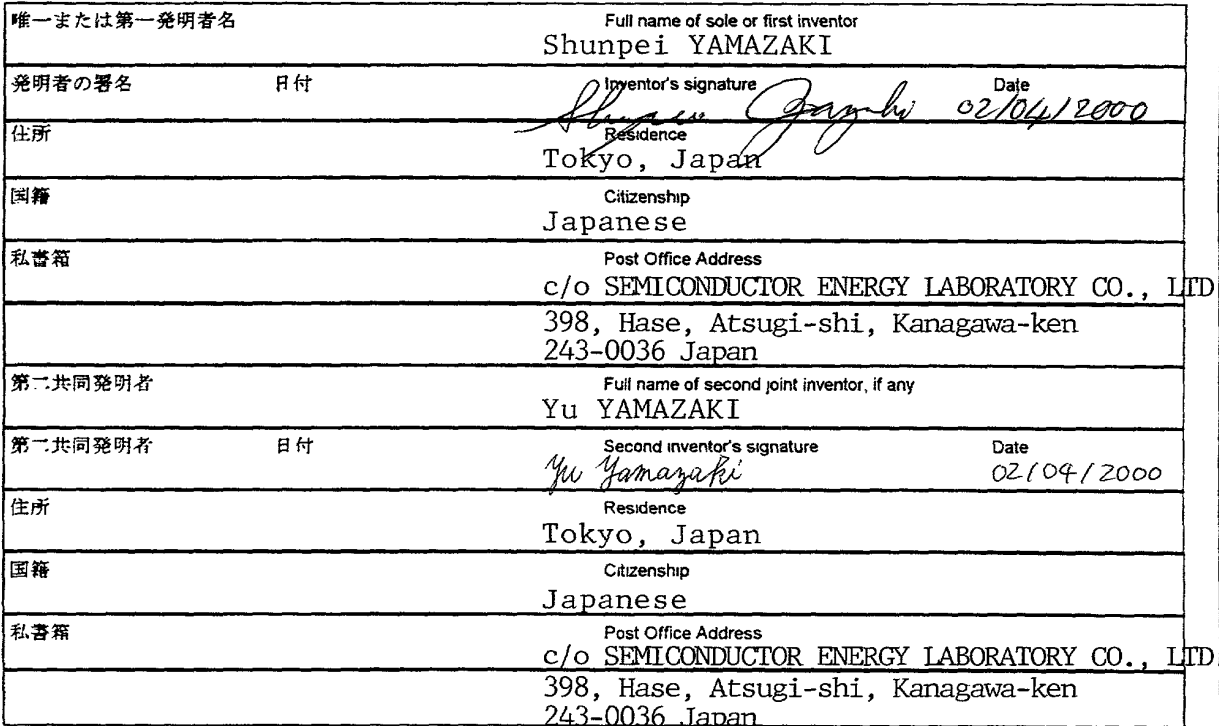 唯一または第一発明者名 Full name of sole or first inventor
Shunpei YAMAZAKI
発明者の署名 日付 Inventor's signature Date
02/04/2000
住所 Residence
Tokyo, Japan
国籍 Citizenship
Japanese
私書箱 Post Office Address
c/o SEMICONDUCTOR ENERGY LABORATORY CO., LTD
398, Hase, Atsugi-shi, Kanagawa-ken
243-0036 Japan
第二共同発明者 Full name of second joint inventor, if any
Yu YAMAZAKI
第二共同発明者 日付 Second inventor's signature Date
Yu Yamazaki 02/04/2000
住所 Residence
Tokyo, Japan
国籍 Citizenship
Japanese
私書箱 Post Office Address
c/o SEMICONDUCTOR ENERGY LABORATORY CO., LTD
398, Hase, Atsugi-shi, Kanagawa-ken
243-0036 Japan